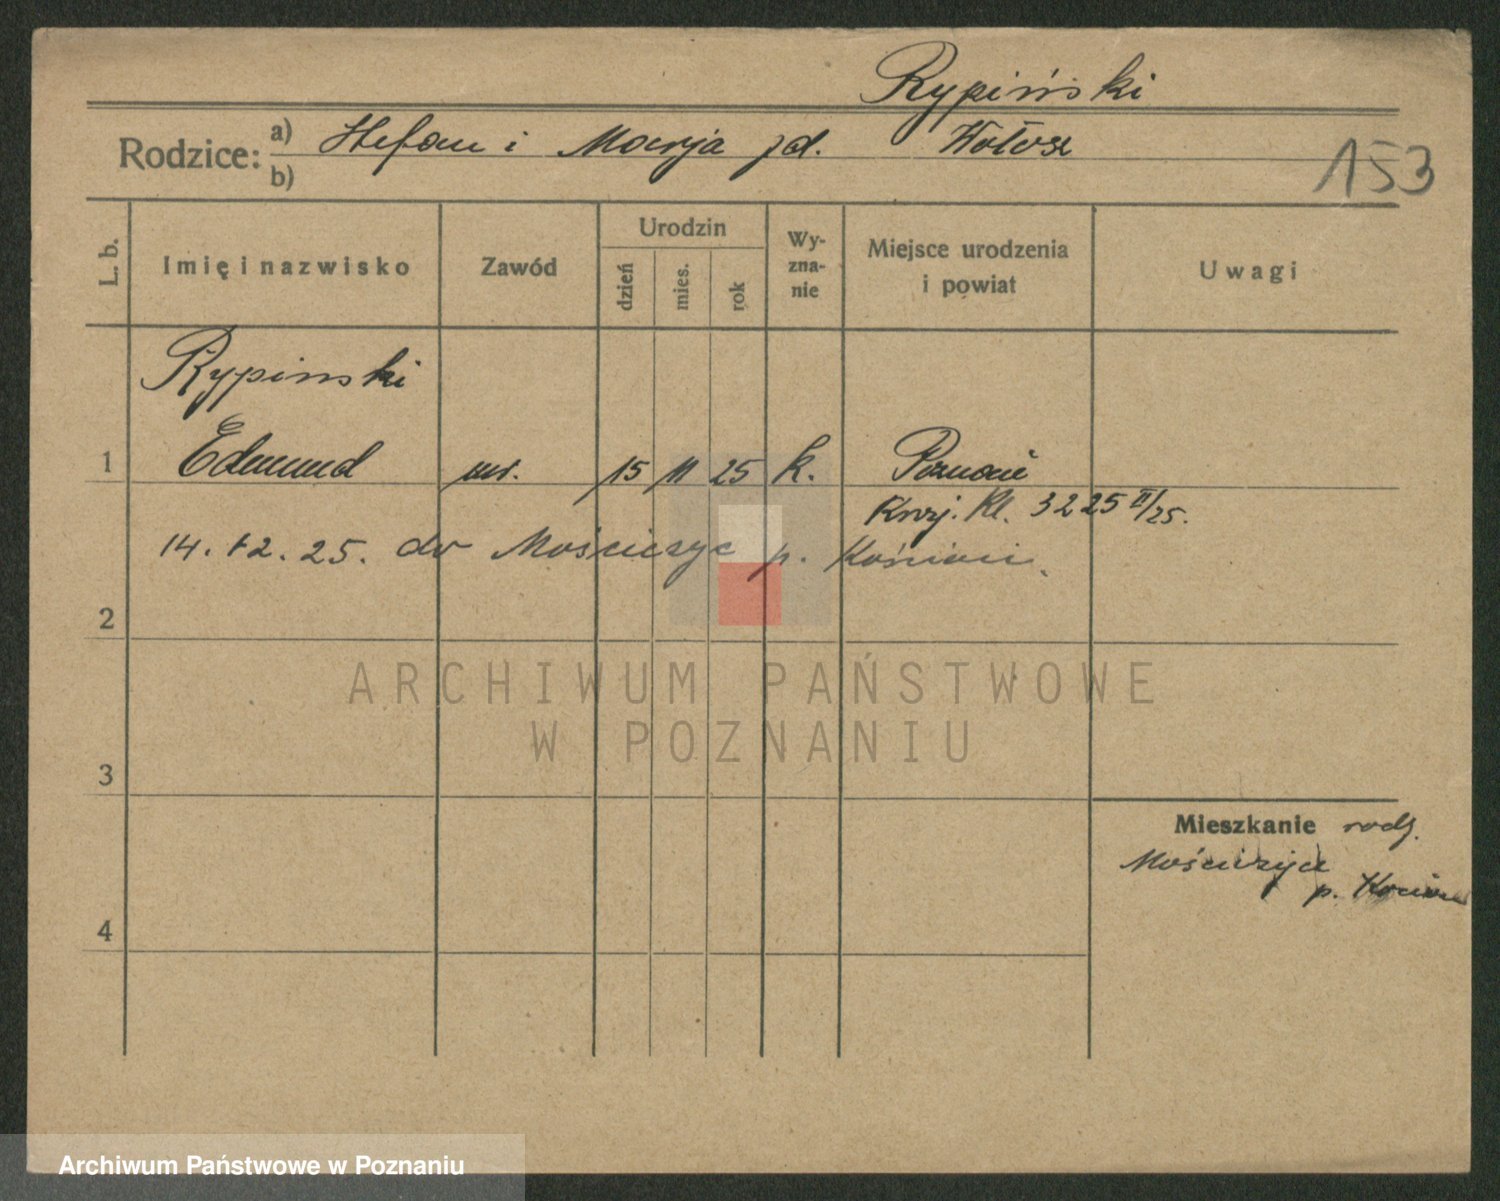 Rypiński
Rodzice: a) Stefan i Marja zd. Wołosz
b)
153
L. b.
Imię i nazwisko
Zawód
Urodzin
dzień
mies.
rok
Wy-
zna-
nie
Miejsce urodzenia
i powiat
Uwagi
Rypinski
1 Edmund 15 11 25 k. Poznań
Kl. 3225 II/25.
14. 12. 25. do p. Kościan.
2
ARCHIWUM PAŃSTWOWE
W POZNANIU
3
Mieszkanie rodz.
p.
4
Archiwum Państwowe w Poznaniu